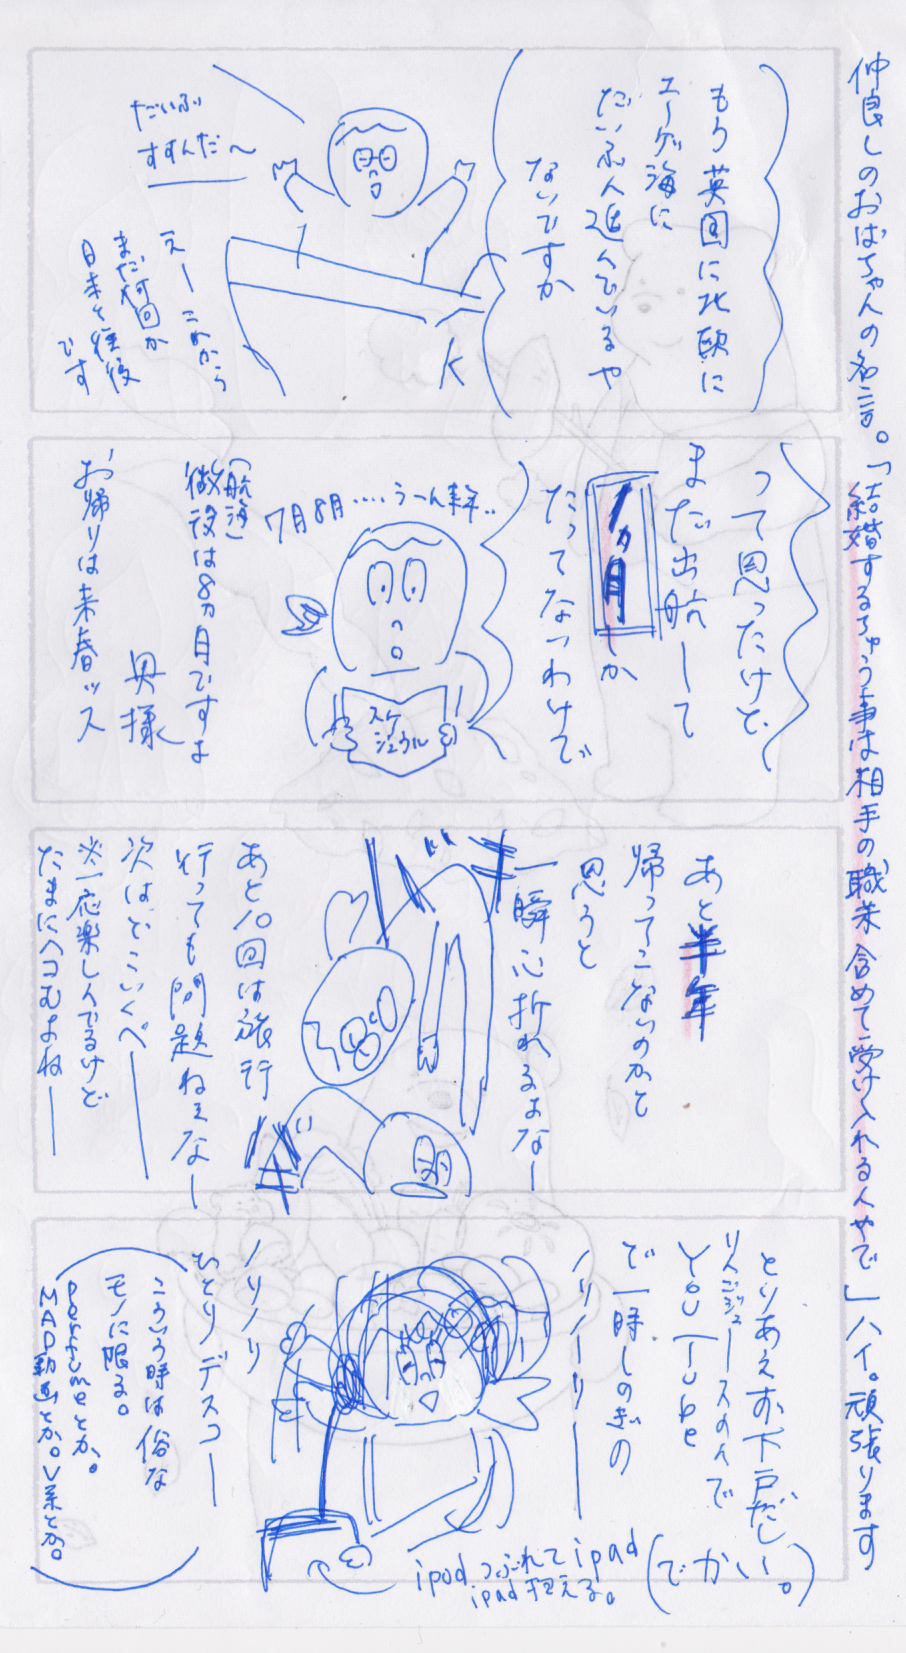 仲良しのおばちゃんの名言。「結婚するちゅう事は相手の職業含めて受け入れる人やで」ハイ。頑張ります
もう英国に北欧に
エーゲ海に
だいぶん進んでいるや
ないですか
だいぶ
すすんだ〜
えー これから
まだ何回か
日本と往復
です
って思ったけど
まだ出航して
1ヵ月しか
たってなつわけで
7月8月‥‥うーん来年‥
スケ
ジュウル
(航海)
懲役は8ヵ月ですよ
奥様
お帰りは来春ッス
あと半年
帰ってこないのかと
思うと
一瞬心折れるよなー
あと10回は旅行
行っても問題ねぇなー
次はどこいくべー
※一応楽しんでるけど
たまにヘコむよねー
とりあえず下戸だし
りんごジュースのんで
You Tube
で一時しのぎの
ノリノーリー
ノリノリ
ひとりノデスコー
こういう時は俗な
モノに限る。
perfumeとか。
MAD動画とか。V系とか。
ipodつぶれてipad
ipad抱える。
(でかい。)